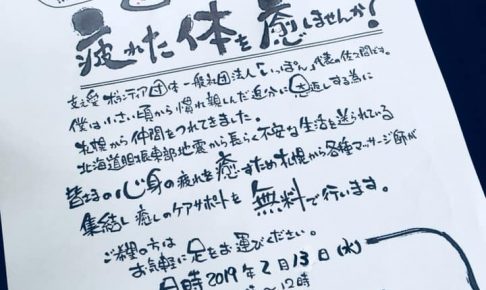 疲れた体を癒しませんか?
支援ボランティア団体 一般社団法人「いっぽん」代表の佐々間です。
僕は小さい頃から慣れ親しんだ追分に恩返しする為に
札幌から仲間をつれてきました。
北海道胆振東部地震から長らく不安な生活を送られている
皆さまの心身の疲れを癒すため札幌から各種マッサージ師が
集結し癒しのケアサポートを無料で行います。
ご希望の方は
お気軽に足をお運びください。
日時 2019年2月13日(水)
〜12時